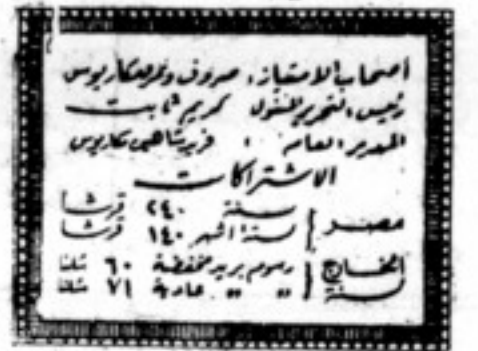 أصحاب الامتياز: صروف ونمر ومكاريوس
رئيس التحرير المسئول كريم ثابت
المدير العام : فريد شاهين مكاريوس
الاشتراكات
مصر { سنة ٢٤٠ قرشا
لستة أشهر ١٤٠ قرشا
الخارج سنة { رسوم بريد مخفضة ٦٠ شلنا
" " عادية ٧١ شلنا